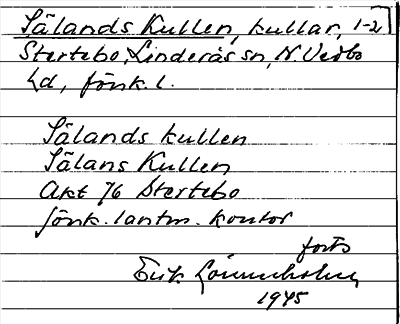 Sälands Kullen, kullar, 1-2
Stertebo, Linderås sn, N. Vedbo
hd, Jönk. l.
Sälands kullen
Sälans Kullen
Akt 76 Stertebo
Jönk. lantm. kontor
forts
Erik Lönnerholm
1945